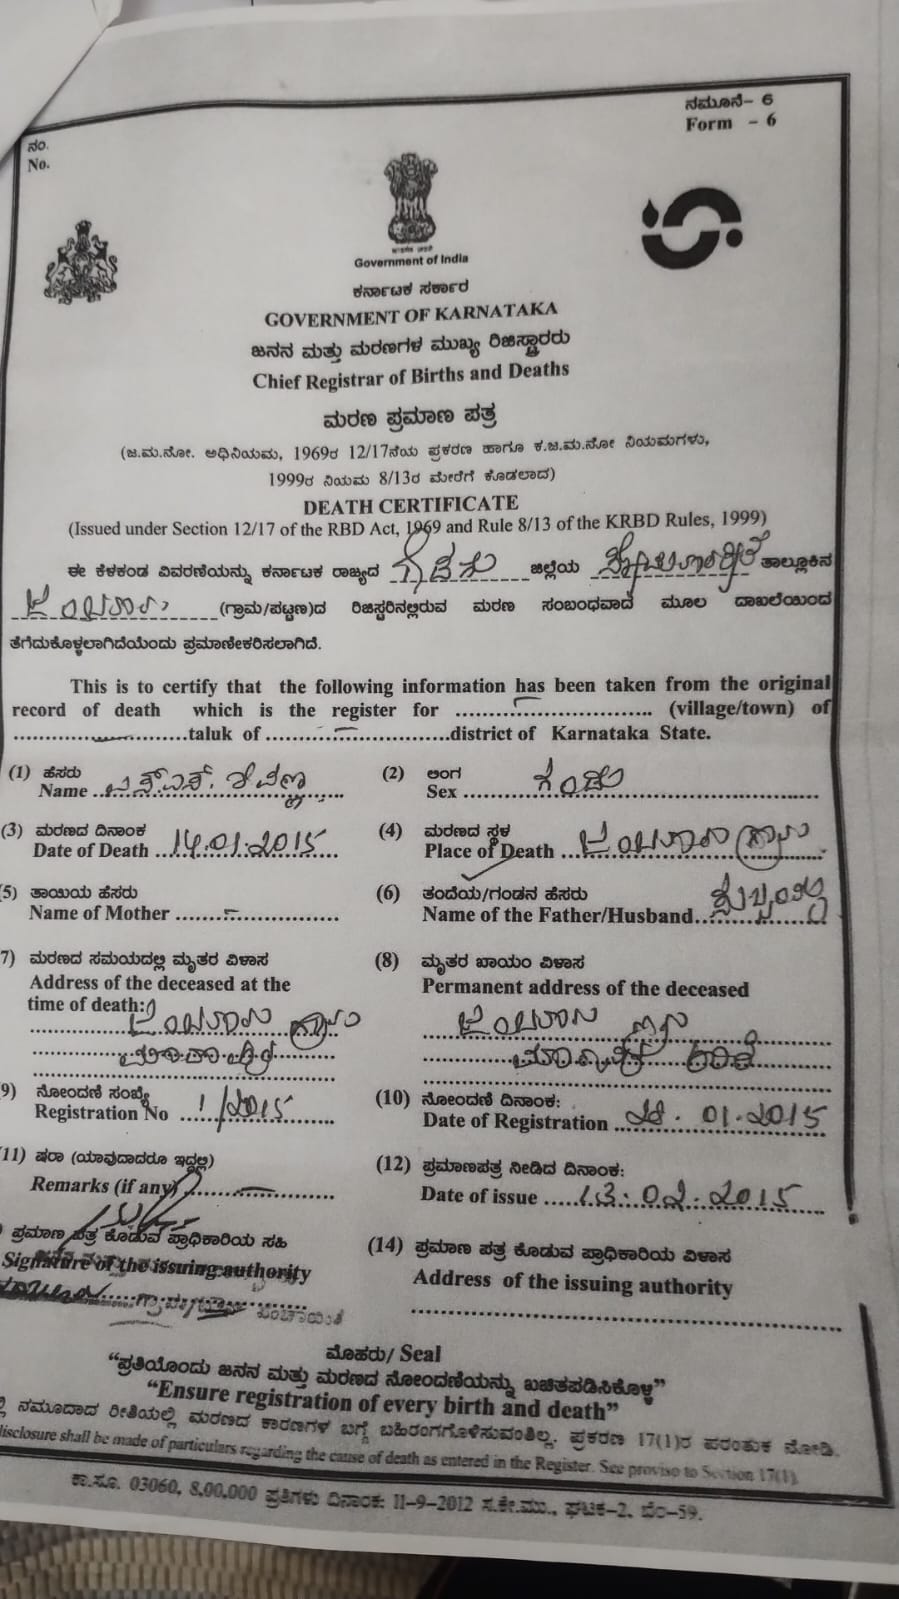 ನಮೂನೆ- 6
Form - 6
ನಂ.
No.
Government of India
ಕರ್ನಾಟಕ ಸರ್ಕಾರ
GOVERNMENT OF KARNATAKA
ಜನನ ಮತ್ತು ಮರಣಗಳ ಮುಖ್ಯ ರಿಜಿಸ್ಟ್ರಾರರು
Chief Registrar of Births and Deaths
ಮರಣ ಪ್ರಮಾಣ ಪತ್ರ
(ಜ.ಮ.ನೋ. ಅಧಿನಿಯಮ, 1969ರ 12/17ನೆಯ ಪ್ರಕರಣ ಹಾಗೂ ಕ.ಜ.ಮ.ನೋ ನಿಯಮಗಳು,
1999ರ ನಿಯಮ 8/13ರ ಮೇರೆಗೆ ಕೊಡಲಾದ)
DEATH CERTIFICATE
(Issued under Section 12/17 of the RBD Act, 1969 and Rule 8/13 of the KRBD Rules, 1999)
ಈ ಕೆಳಕಂಡ ವಿವರಣೆಯನ್ನು ಕರ್ನಾಟಕ ರಾಜ್ಯದ ಜಿಲ್ಲೆಯ ತಾಲ್ಲೂಕಿನ
(ಗ್ರಾಮ/ಪಟ್ಟಣ)ದ ರಿಜಿಸ್ಟರಿನಲ್ಲಿರುವ ಮರಣ ಸಂಬಂಧವಾದ ಮೂಲ ದಾಖಲೆಯಿಂದ
ತೆಗೆದುಕೊಳ್ಳಲಾಗಿದೆಯೆಂದು ಪ್ರಮಾಣೀಕರಿಸಲಾಗಿದೆ.
This is to certify that the following information has been taken from the original
record of death which is the register for .............................. (village/town) of
..........................taluk of ............................district of Karnataka State.
(1) ಹೆಸರು (2) ಲಿಂಗ
Name Sex ಗಂಡು
(3) ಮರಣದ ದಿನಾಂಕ (4) ಮರಣದ ಸ್ಥಳ
Date of Death 14.01.2015 Place of Death
5) ತಾಯಿಯ ಹೆಸರು (6) ತಂದೆಯ/ಗಂಡನ ಹೆಸರು
Name of Mother Name of the Father/Husband
7) ಮರಣದ ಸಮಯದಲ್ಲಿ ಮೃತರ ವಿಳಾಸ (8) ಮೃತರ ಖಾಯಂ ವಿಳಾಸ
Address of the deceased at the Permanent address of the deceased
time of death:
9) ನೋಂದಣಿ ಸಂಖ್ಯೆ (10) ನೋಂದಣಿ ದಿನಾಂಕ:
Registration No 1/2015 Date of Registration 28.01.2015
11) ಷರಾ (ಯಾವುದಾದರೂ ಇದ್ದಲ್ಲಿ) (12) ಪ್ರಮಾಣಪತ್ರ ನೀಡಿದ ದಿನಾಂಕ:
Remarks (if any) Date of issue 13.02.2015
) ಪ್ರಮಾಣ ಪತ್ರ ಕೊಡುವ ಪ್ರಾಧಿಕಾರಿಯ ಸಹಿ (14) ಪ್ರಮಾಣ ಪತ್ರ ಕೊಡುವ ಪ್ರಾಧಿಕಾರಿಯ ವಿಳಾಸ
Signature of the issuing authority Address of the issuing authority
ಮೊಹರು/ Seal
“ಪ್ರತಿಯೊಂದು ಜನನ ಮತ್ತು ಮರಣದ ನೋಂದಣಿಯನ್ನು ಖಚಿತಪಡಿಸಿಕೊಳ್ಳಿ”
“Ensure registration of every birth and death”
ನಮೂದಾದ ರೀತಿಯಲ್ಲಿ ಮರಣದ ಕಾರಣಗಳ ಬಗ್ಗೆ ಬಹಿರಂಗಗೊಳಿಸುವಂತಿಲ್ಲ. ಪ್ರಕರಣ 17(1)ರ ಪರಂತುಕ ನೋಡಿ.
disclosure shall be made of particulars regarding the cause of death as entered in the Register. See proviso to Section 17(1).
ಕಾ.ಸೂ. 03060, 8,00,000 ಪ್ರತಿಗಳು ದಿನಾಂಕ: 11-9-2012 ಸ.ಕೇ.ಮು., ಘಟಕ-2, ಬೆಂ-59.